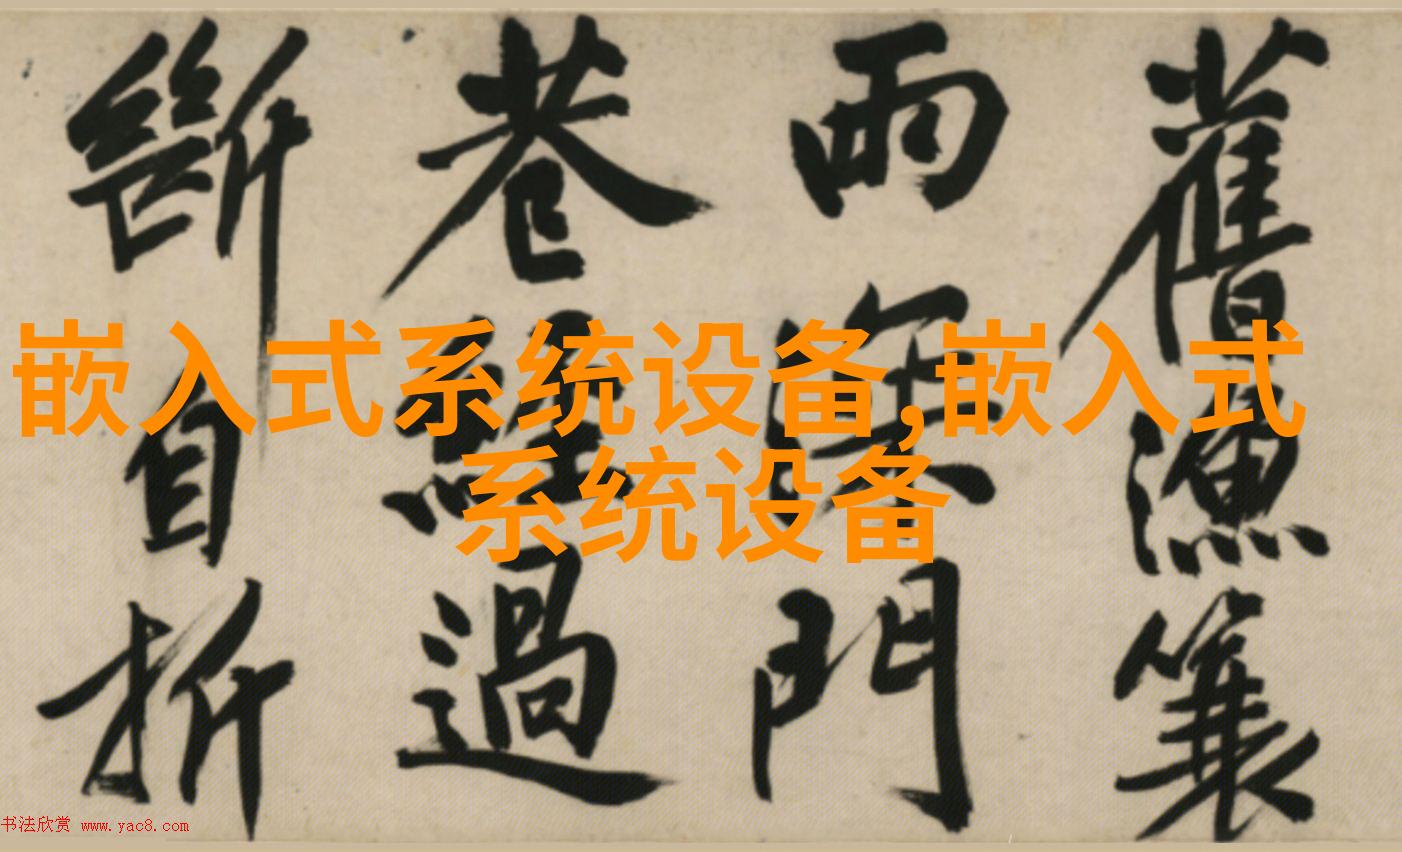 嵌入式系统设备,嵌入式
系统设备
舊漁簑
雨深門
巷經過
斷自折
书法欣赏 www.yac8.com